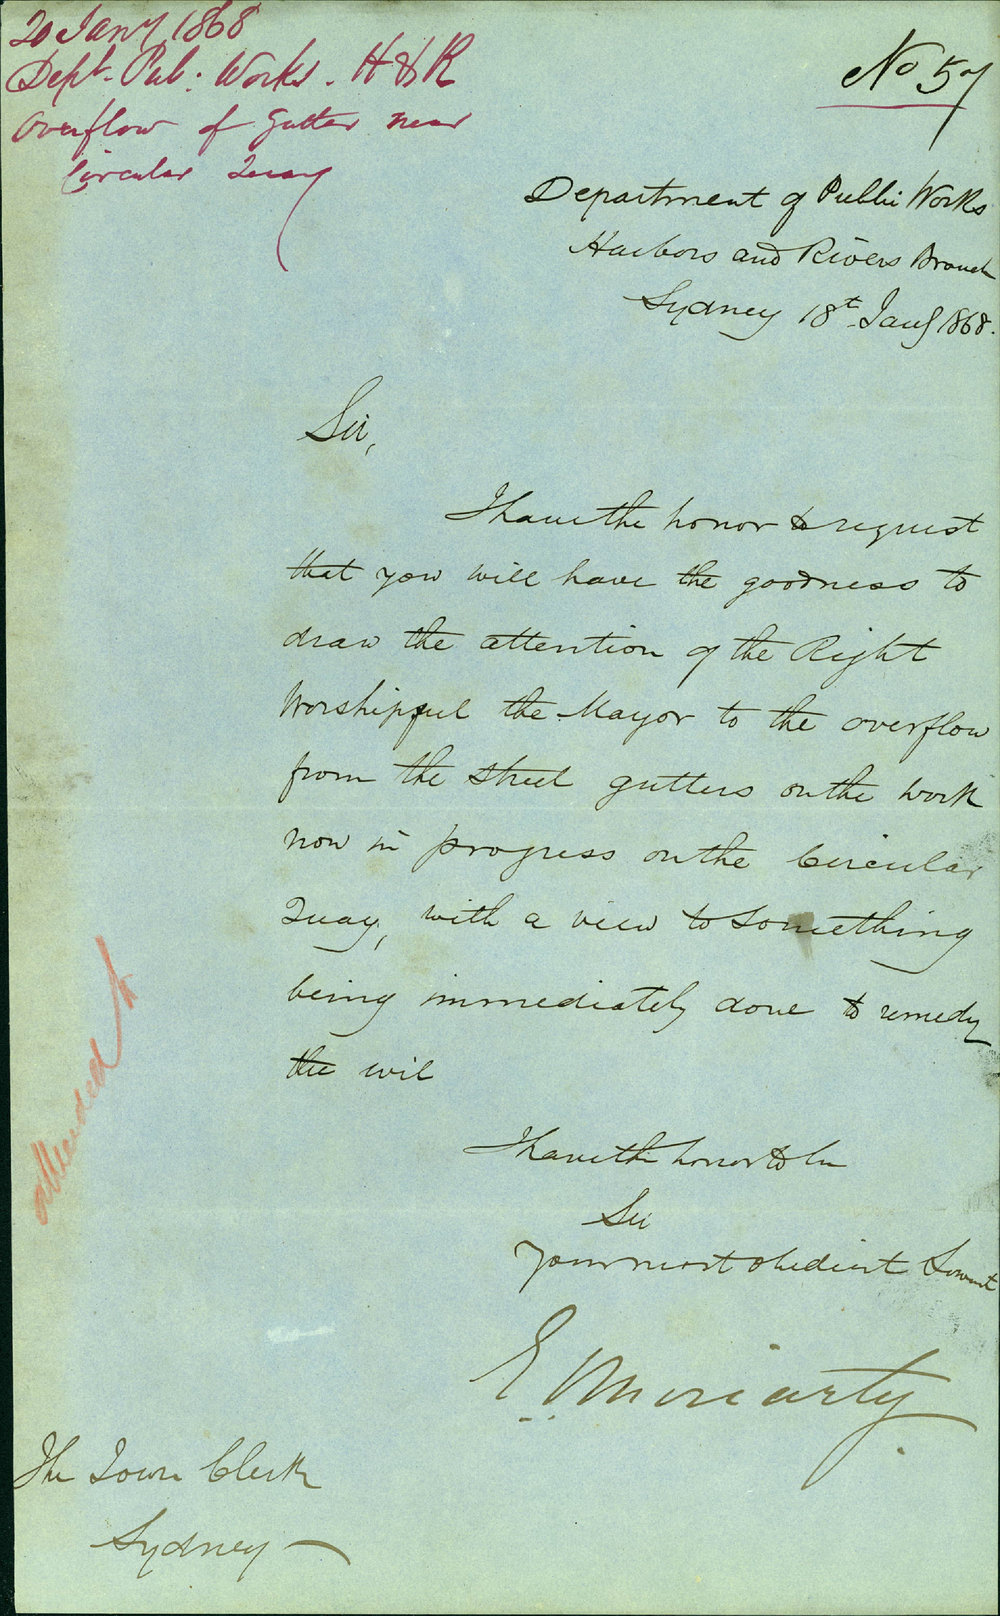 20 Jany 1868
Dept. Pub: Works. H & R
Overflow of Gutter near
Circular Quay
No 57
Department of Public Works
Harbors and Rivers Branch
Sydney 18th Jany 1868.
Sir,
I have the honor to request
that you will have the goodness to
draw the attention of the Right
Worshipful the Mayor to the overflow
from the street gutters on the work
now in progress on the Circular
Quay, with a view to something
being immediately done to remedy
the evil
I have the honor to be
Sir
Your most obedient Servant
E. Moriarty.
attended to
The Town Clerk
Sydney